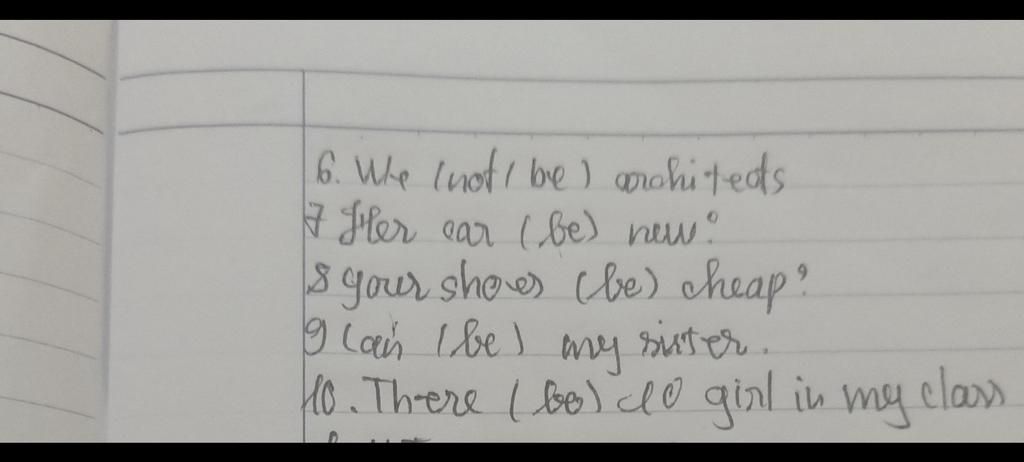 6. We (not / be) architects
7 Her car (be) new?
8 your shoes (be) cheap?
9 (be) my sister.
10. There (be) 10 girl in my class